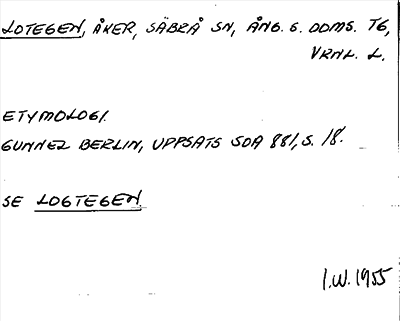 LOTEGEN, ÅKER, SÄBRÅ SN, ÅNG. G. DOMS. T6,
VRNL. L.
ETYMOLOGI.
GUNNEL BERLIN, UPPSATS SOA 881, S. 18.
SE LOGTEGEN
I.W. 1955